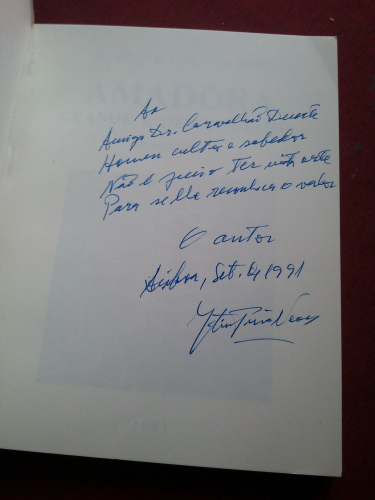 Ao
Amigo Dr. Carvalhão Duarte
Homem culto e sabedor
Não é preciso ter vista
Para se lhe reconhecer o valor
O autor
Lisboa, Set. de 1991
AMADORA